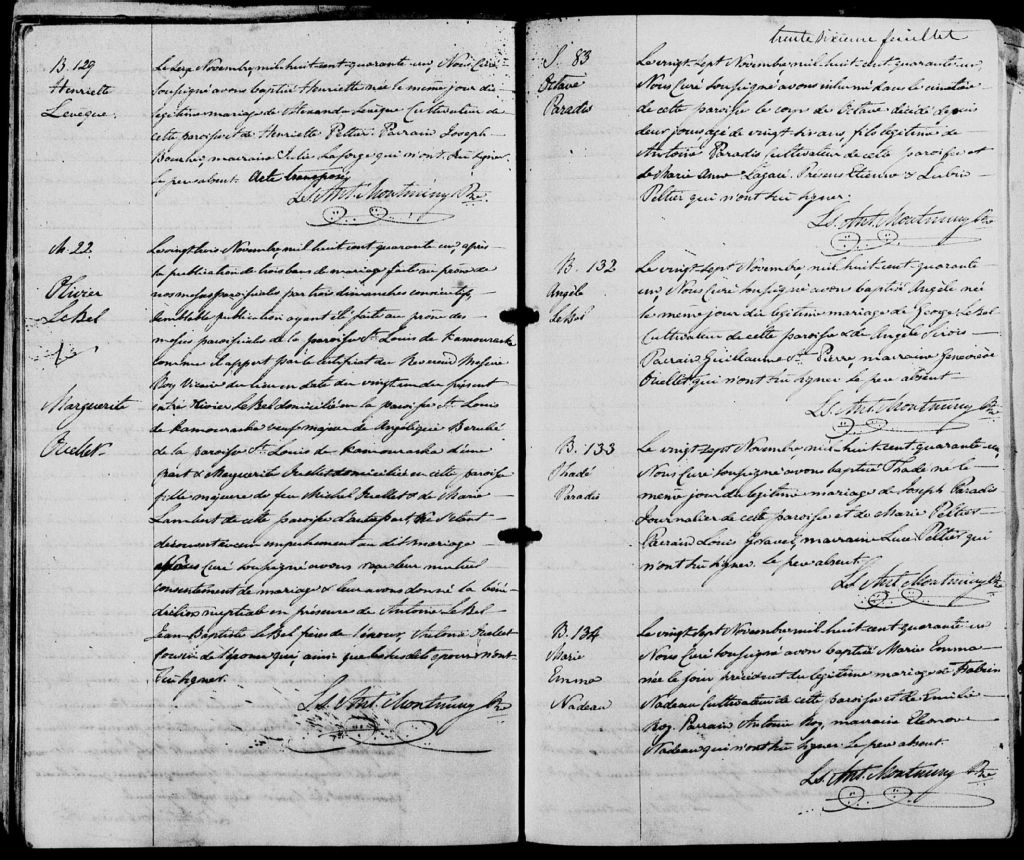 B. 129
Henriette
Leveque.
Le seize Novembre, mil huit cent quarante un, Nous Curé
soussigné avons baptisé Henriette née le même jour du
légitime mariage de Alexandre Levêque Cultivateur de
cette paroisse et de Henriette Peltier. Parrain Joseph
marraine Julie Laforge qui n'ont su signer
le pere absent. Acte transposé
Ls. Ant. Montminy Ptre
M. 22.
Olivier
LeBel
&
Marguerite
Ouellet.
Le vingt trois Novembre, mil huit cent quarante un, après
la publication de trois bans de mariage faite au prône de
nos messes paroissiales par trois dimanches consécutifs,
semblable publication ayant été faite au prône des
messes paroissiales de la paroisse St. Louis de Kamouraska
comme il appert par le certificat du Revérend Messire
Roy Vicaire du lieu en date du vingt un du présent
entre Olivier LeBel domicilié en la paroisse St. Louis
de Kamouraska veuf majeur de Angélique Berubé
de la paroisse St. Louis de Kamouraska d'une
part & Marguerite Ouellet domiciliée en cette paroisse
fille majeure de feu Michel Ouellet & de Marie
Lambert de cette paroisse d'autre part ne s'étant
découvert aucun empêchement au dit mariage
Curé soussigné avons reçu leur mutuel
consentement de mariage & leur avons donné la béné-
diction nuptiale en présence de Antoine LeBel
Jean Baptiste LeBel frères de l'époux, Antoine Ouellet
de l'épouse qui, ainsi que les dits époux n'ont
su signer.
Ls. Ant. Montminy Ptre
trente sixieme feuillet
S. 83
Octave
Paradis
Le vingt sept Novembre mil huit cent quarante un,
Nous Curé soussigné avons inhumé dans le cimetière
de cette paroisse le corps de Octave décédé depuis
deux jours agé de vingt six ans, fils légitime de
Antoine Paradis Cultivateur de cette paroisse et
de Marie Anne Lagacé. Présens Etienne & Lubin
Peltier qui n'ont su signer.
Ls. Ant. Montminy Ptre
B. 132
Angèle
LeBel
Le vingt sept Novembre mil huit cent quarante
un, Nous Curé soussigné avons baptisé Angèle née
le même jour du légitime mariage de George LeBel
Cultivateur de cette paroisse & de Angèle Sirois
Parrain Guillaume St. Pierre, marraine Geneviève
Ouellet qui n'ont su signer le pere absent
Ls. Ant. Montminy Ptre
B. 133
Thadé
Paradis
Le vingt sept Novembre mil huit cent quarante un,
Nous Curé soussigné avons baptisé Thadé né le
même jour du légitime mariage de Joseph Paradis
Journalier de cette paroisse et de Marie Peltier
Parrain Louis marraine Luce Peltier qui
n'ont su signer. le pere absent.
Ls. Ant. Montminy Ptre
B. 134
Marie
Emma
Nadeau
Le vingt sept Novembre mil huit cent quarante un
Nous Curé soussigné avons baptisé Marie Emma
née le jour précédent du légitime mariage de
Nadeau Cultivateur de cette paroisse et de Emilie
Roy. Parrain Antoine Roy, marraine Eleonore
Nadeau qui n'ont su signer. Le pere absent.
Ls. Ant. Montminy Ptre